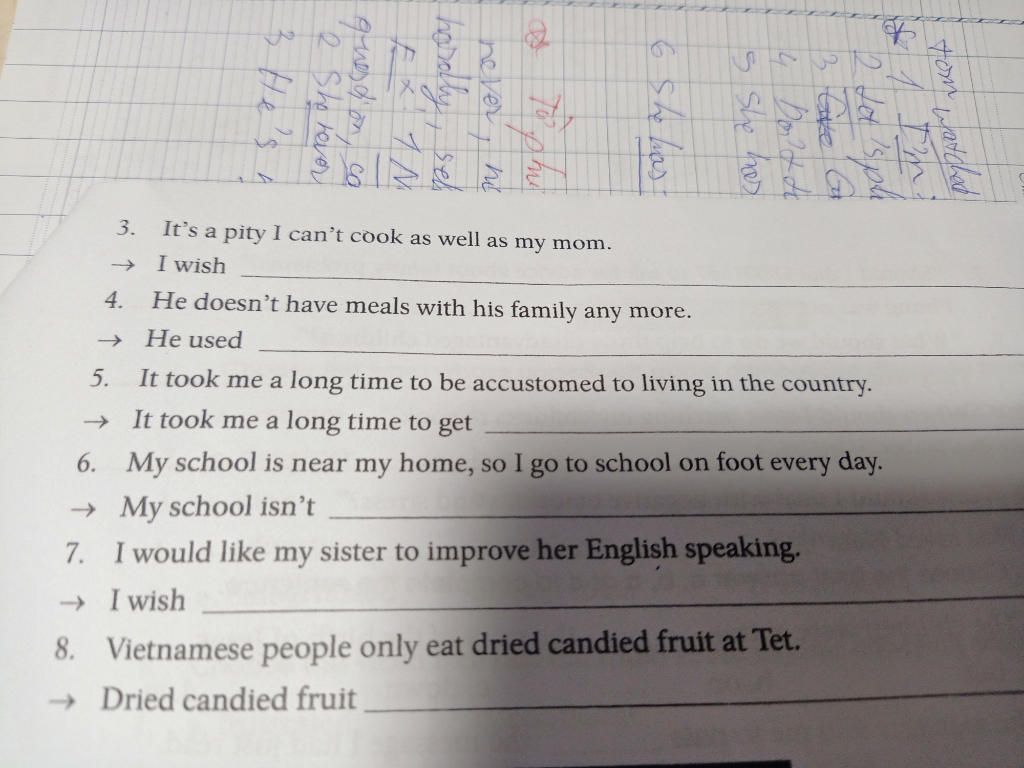 tom watched
1 I'm
2 Let's
3
4 Don't
5 She has
6 She has
never,
hardly,
Ex: 1 N
question,
2 She never
3 He's
3. It's a pity I can't cook as well as my mom.
→ I wish
4. He doesn't have meals with his family any more.
→ He used
5. It took me a long time to be accustomed to living in the country.
→ It took me a long time to get
6. My school is near my home, so I go to school on foot every day.
→ My school isn't
7. I would like my sister to improve her English speaking.
→ I wish
8. Vietnamese people only eat dried candied fruit at Tet.
→ Dried candied fruit